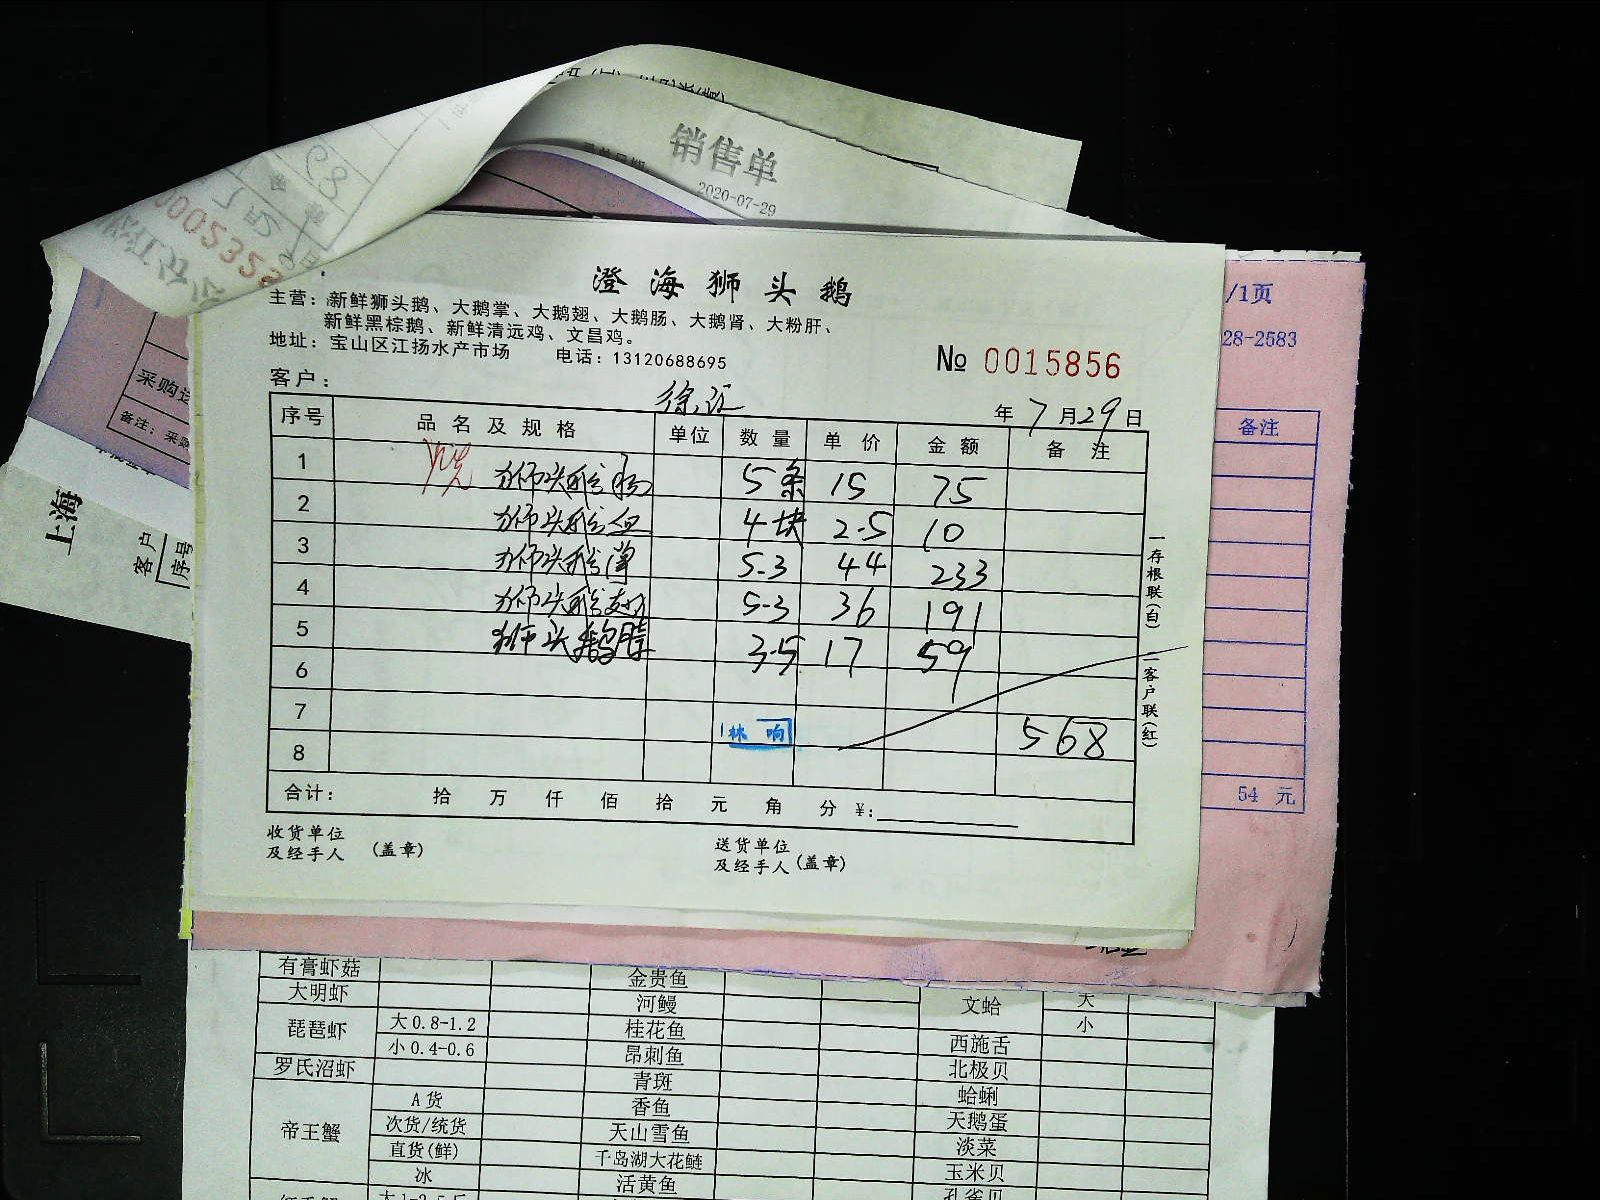 销售单
2020-07-29
0005352
澄海狮头鹅
主营：新鲜狮头鹅、大鹅掌、大鹅翅、大鹅肠、大鹅肾、大粉肝、
新鲜黑棕鹅、新鲜清远鸡、文昌鸡。
地址：宝山区江扬水产市场 电话：13120688695
№ 0015856
客户：
年 7 月 29 日
序号 品名及规格 单位 数量 单价 金额 备注
1 狮头鹅肠 5条 15 75
2 狮头鹅血 4块 2.5 10
3 狮头鹅掌 5.3 44 233
4 狮头鹅翅 5.3 36 191
5 狮头鹅胗 3.5 17 59
6
7 林响 568
8
合计： 拾 万 仟 佰 拾 元 角 分 ¥:
收货单位 送货单位
及经手人 (盖章) 及经手人 (盖章)
一存根联(白)
二客户联(红)
/1页
28-2583
备注
54 元
采购
备注：采购
上海
客户
序号
有膏虾菇 金贵鱼
大明虾 河鳗 文蛤 大
琵琶虾 大0.8-1.2 桂花鱼 小
小0.4-0.6 昂刺鱼 西施舌
罗氏沼虾 青斑 北极贝
帝王蟹 A货 香鱼 蛤蜊
次货/统货 天山雪鱼 天鹅蛋
直货(鲜) 千岛湖大花鲢 淡菜
冰 活黄鱼 玉米贝